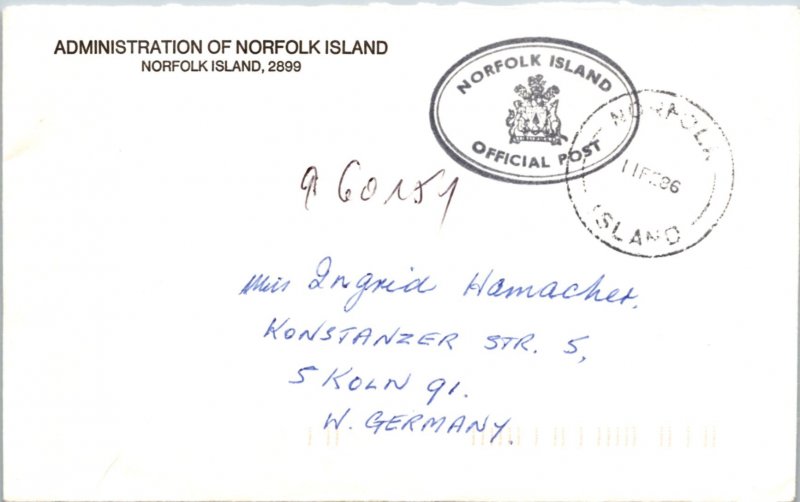 ADMINISTRATION OF NORFOLK ISLAND
NORFOLK ISLAND, 2899
NORFOLK ISLAND
OFFICIAL POST
NORFOLK
11FE86
ISLAND
60151
Miss Ingrid Hamacher.
KONSTANZER STR. 5,
5 KOLN 91.
W. GERMANY.